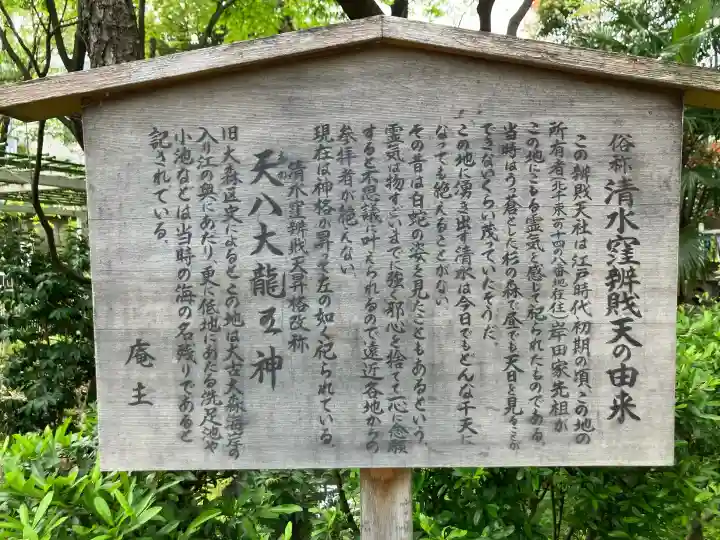 俗称 清水窪辨財天の由来
この辨財天社は江戸時代初期の頃、この地の
所有者(北千束一の十四の八番地在住)岸田家先祖が
この地にこもる霊気を感じて祀られたものである。
当時はうっ蒼とした杉の森で昼でも天日を見ることが
できないくらい茂っていたそうだ。
この地に湧き出す清水は今日でもどんな干天に
なっても絶えることがない
その昔は白蛇の姿を見たこともあるという。
霊気は物すごいまでに強く邪心を捨てて一心に念願
すると不思議に叶えられるので遠近各地からの
参拝者が絶えない
現在は神格が昇って左の如く祀られている。
清水窪辨財天昇格改称
天八大龍王神
旧大森区史によるとこの地は太古大森海岸の
入り江の奥にあたり、更に低地にあたる洗足池や
小池などは当時の海の名残りであると
記されている。
庵主